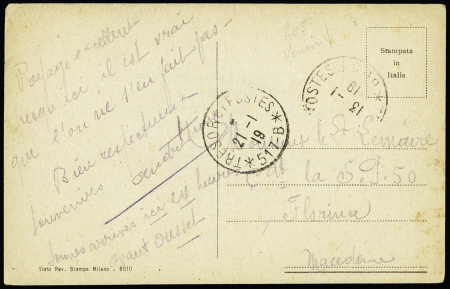 Voyage excellent
jusqu'ici, il est vrai
que l'on ne s'en fait pas
Bien respectueux
souvenirs
Sommes arrivés ici 24 heures
avant Oussel
TRESOR ET POSTES
21-1
19
*517-B*
POSTES
13-1
19
Stampata
in
Italia
Lemaire
la S.P. 50
Florina
Macedoine
Visto Rev. Stampa Milano - 6510